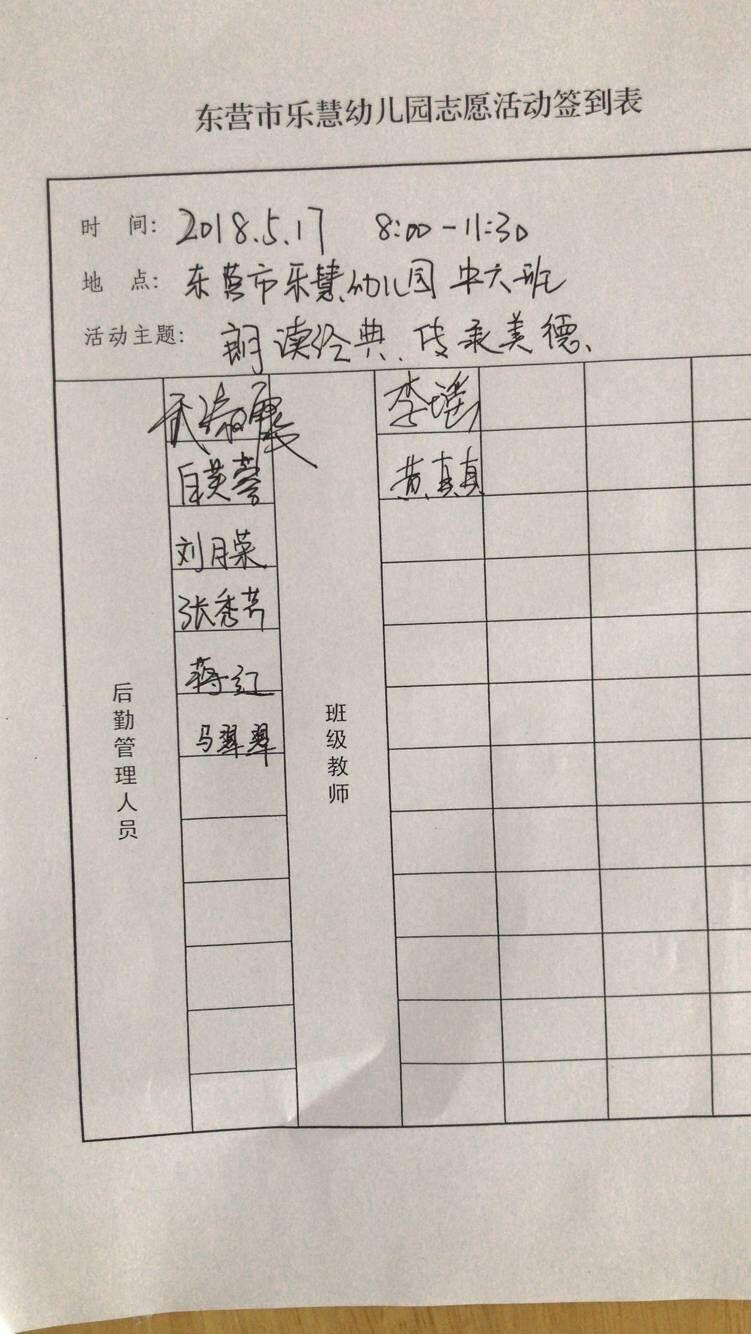 东营市乐慧幼儿园志愿活动签到表
时 间: 2018.5.17 8:00-11:30
地 点: 东营市乐慧幼儿园 中六班
活动主题: 朗读经典、传承美德、
李瑶
黄真真
刘月荣
张秀芳
蒋红
马翠翠
后勤管理人员
班级教师